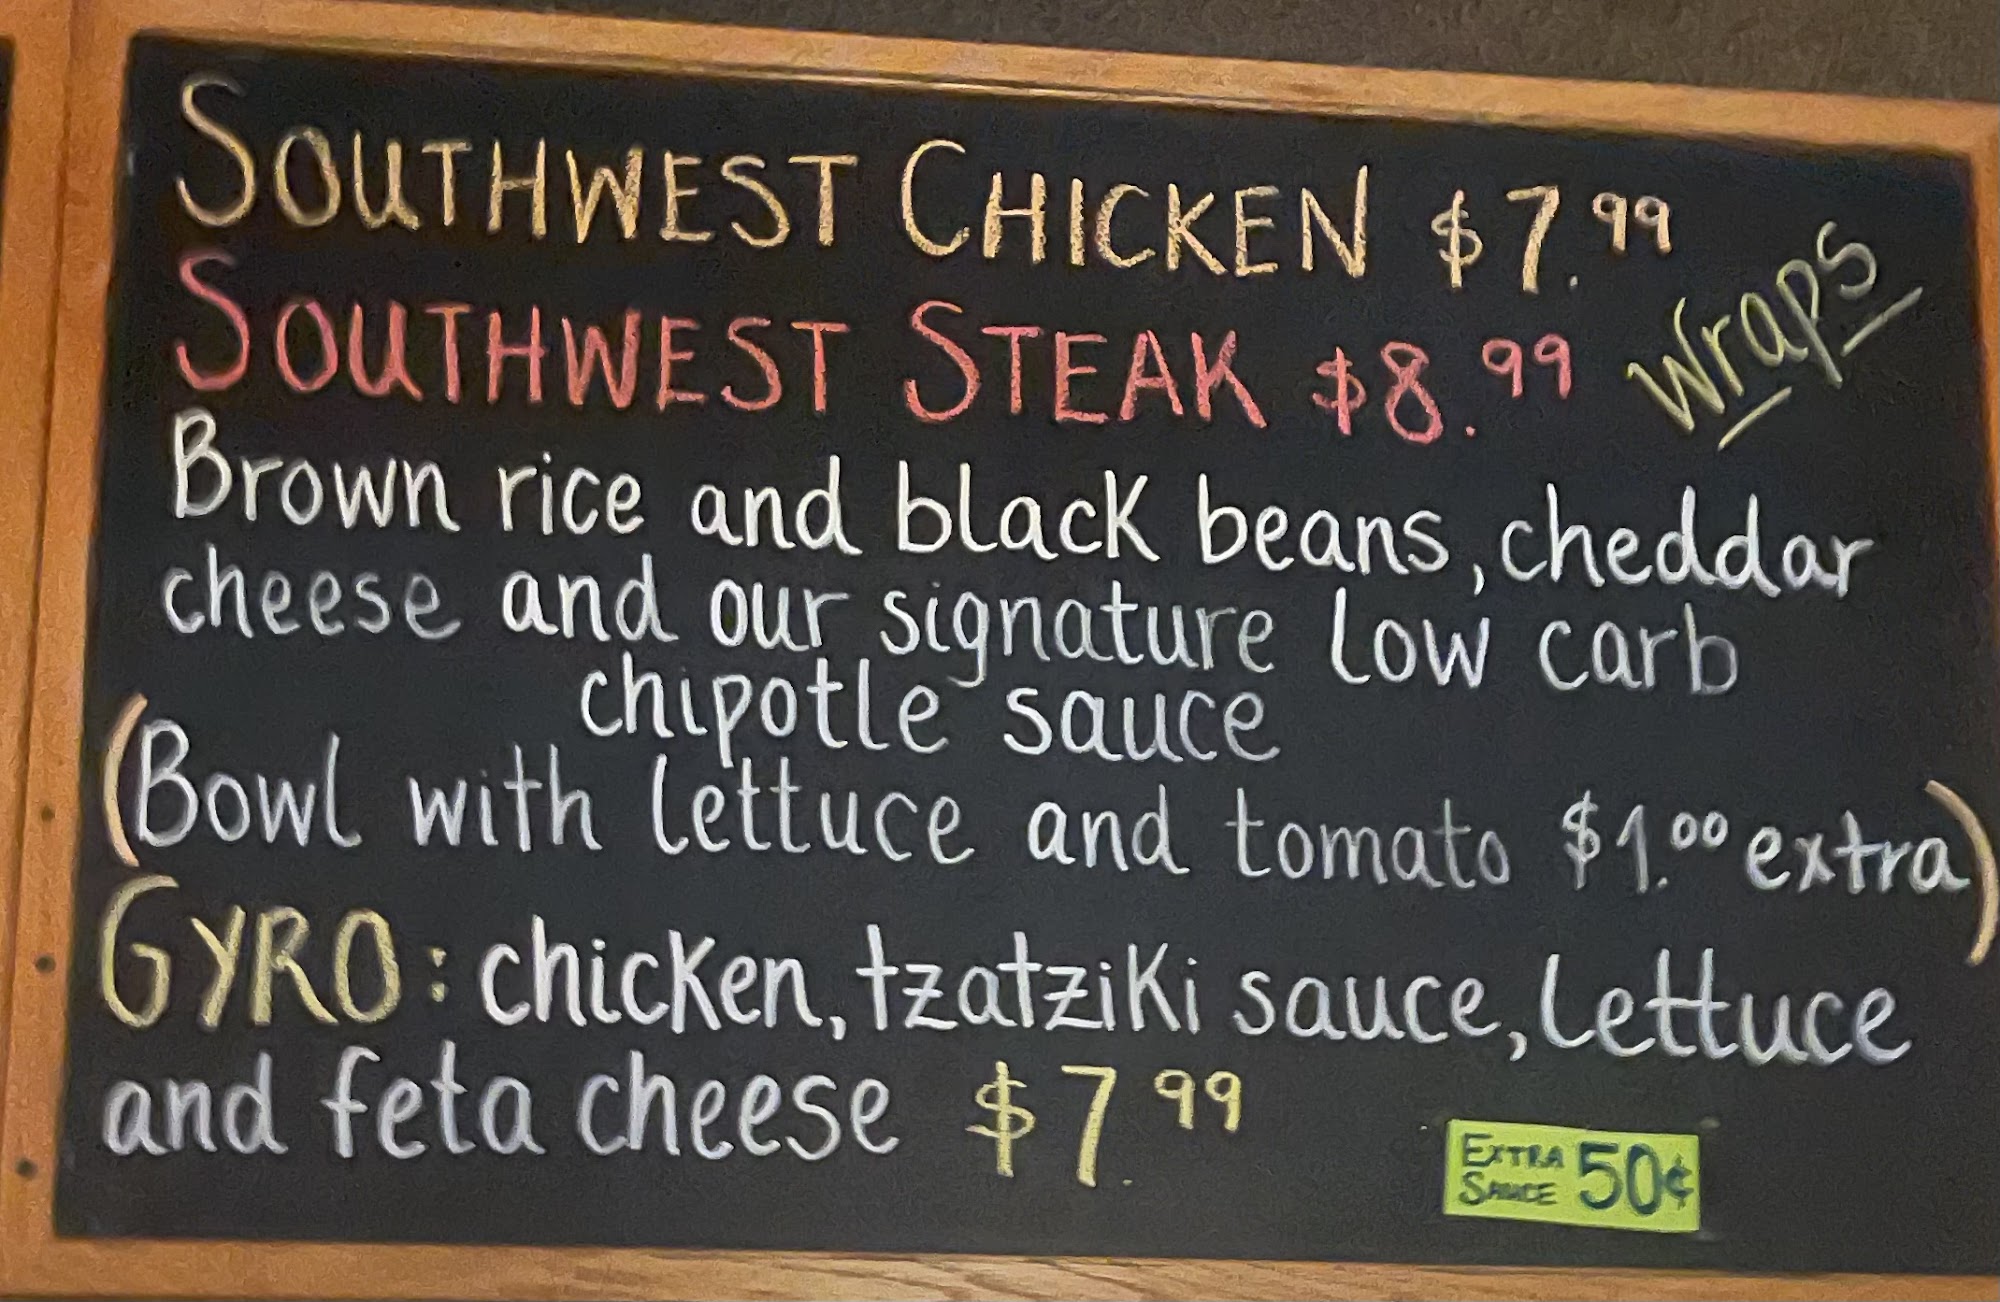 SOUTHWEST CHICKEN $7.99
SOUTHWEST STEAK $8.99
Wraps
Brown rice and black beans, cheddar
cheese and our signature low carb
chipotle sauce
(Bowl with lettuce and tomato $1.00 extra)
GYRO: chicken, tzatziki sauce, lettuce
and feta cheese $7.99
EXTRA SAUCE 50¢